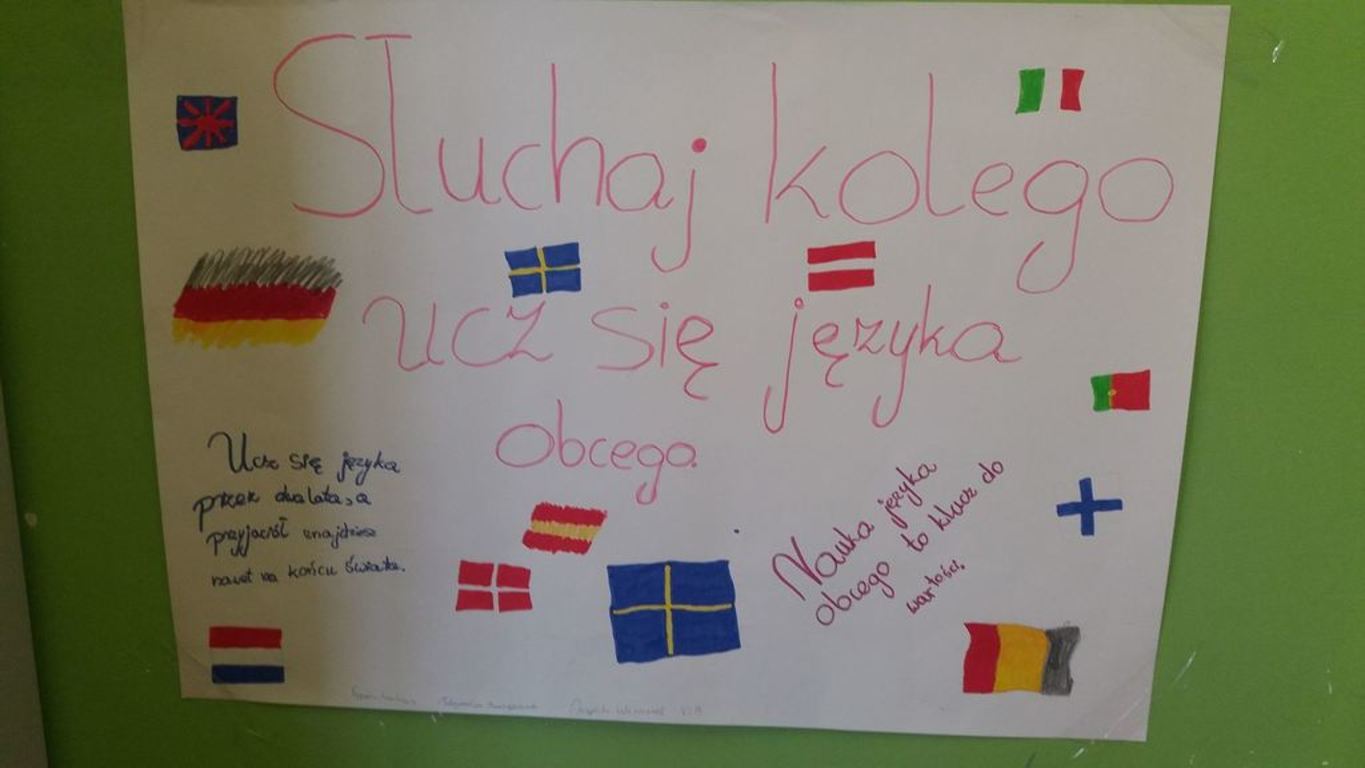 Słuchaj kolego
ucz się języka
obcego.
Ucz się języka
przez dwa lata, a
przyjaciół znajdziesz
nawet na końcu świata.
Nauka języka
obcego to klucz do
wartości.